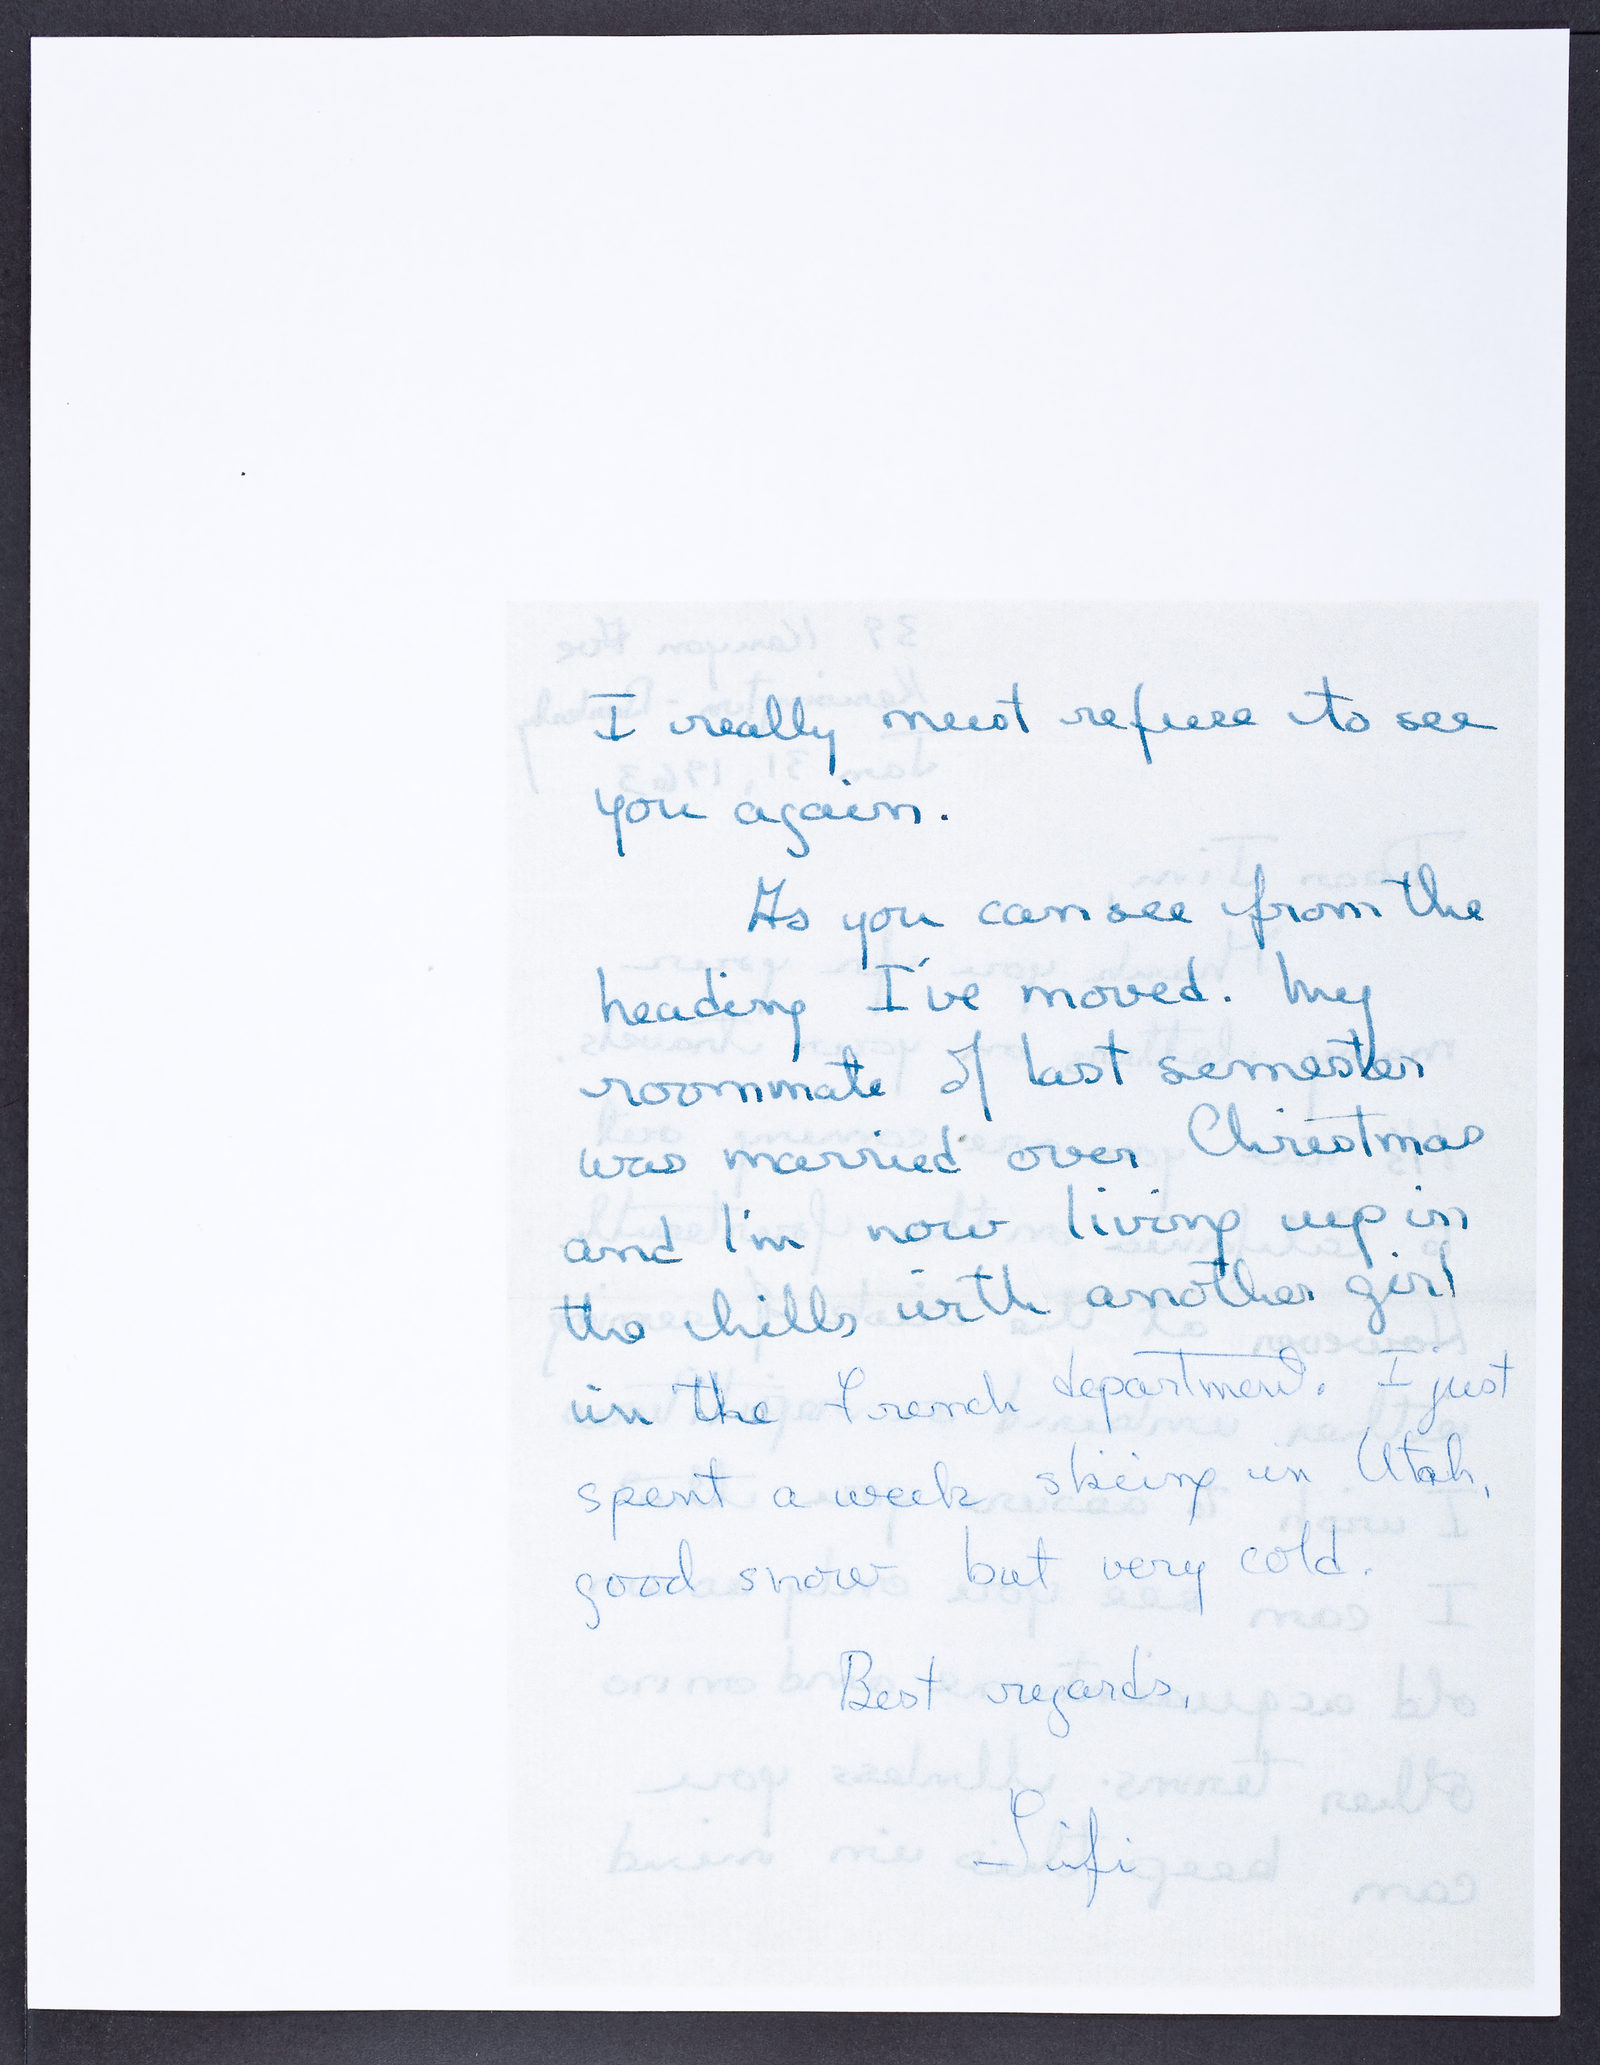 I really must refuse to see
you again.
As you can see from the
heading I've moved. My
roommate of last semester
was married over Christmas
and I'm now living up in
the hills with another girl
in the French department. I just
spent a week skiing in Utah,
good snow but very cold.
Best regards,
Fifi